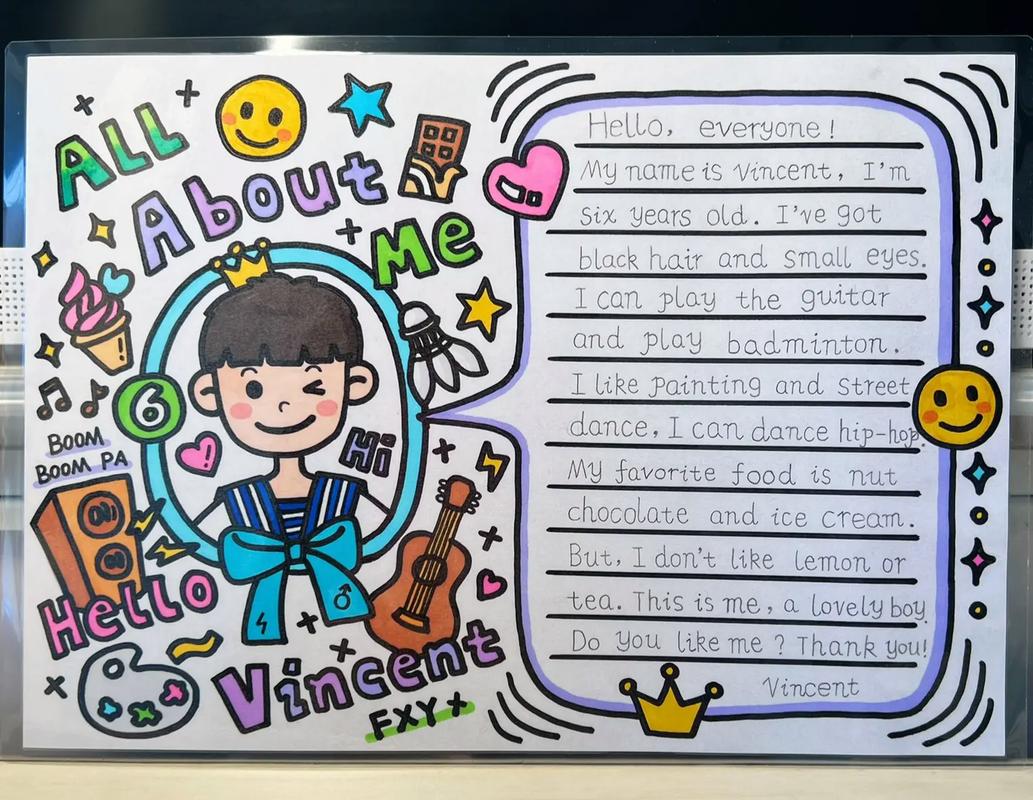 ALL
About
Me
6
BOOM
BOOM PA
Hi
Hello
Vincent
FXY
Hello, everyone!
My name is Vincent, I'm
six years old. I've got
black hair and small eyes.
I can play the guitar
and play badminton.
I like painting and street
dance, I can dance hip-hop.
My favorite food is nut
chocolate and ice cream.
But, I don't like lemon or
tea. This is me, a lovely boy.
Do you like me? Thank you!
Vincent